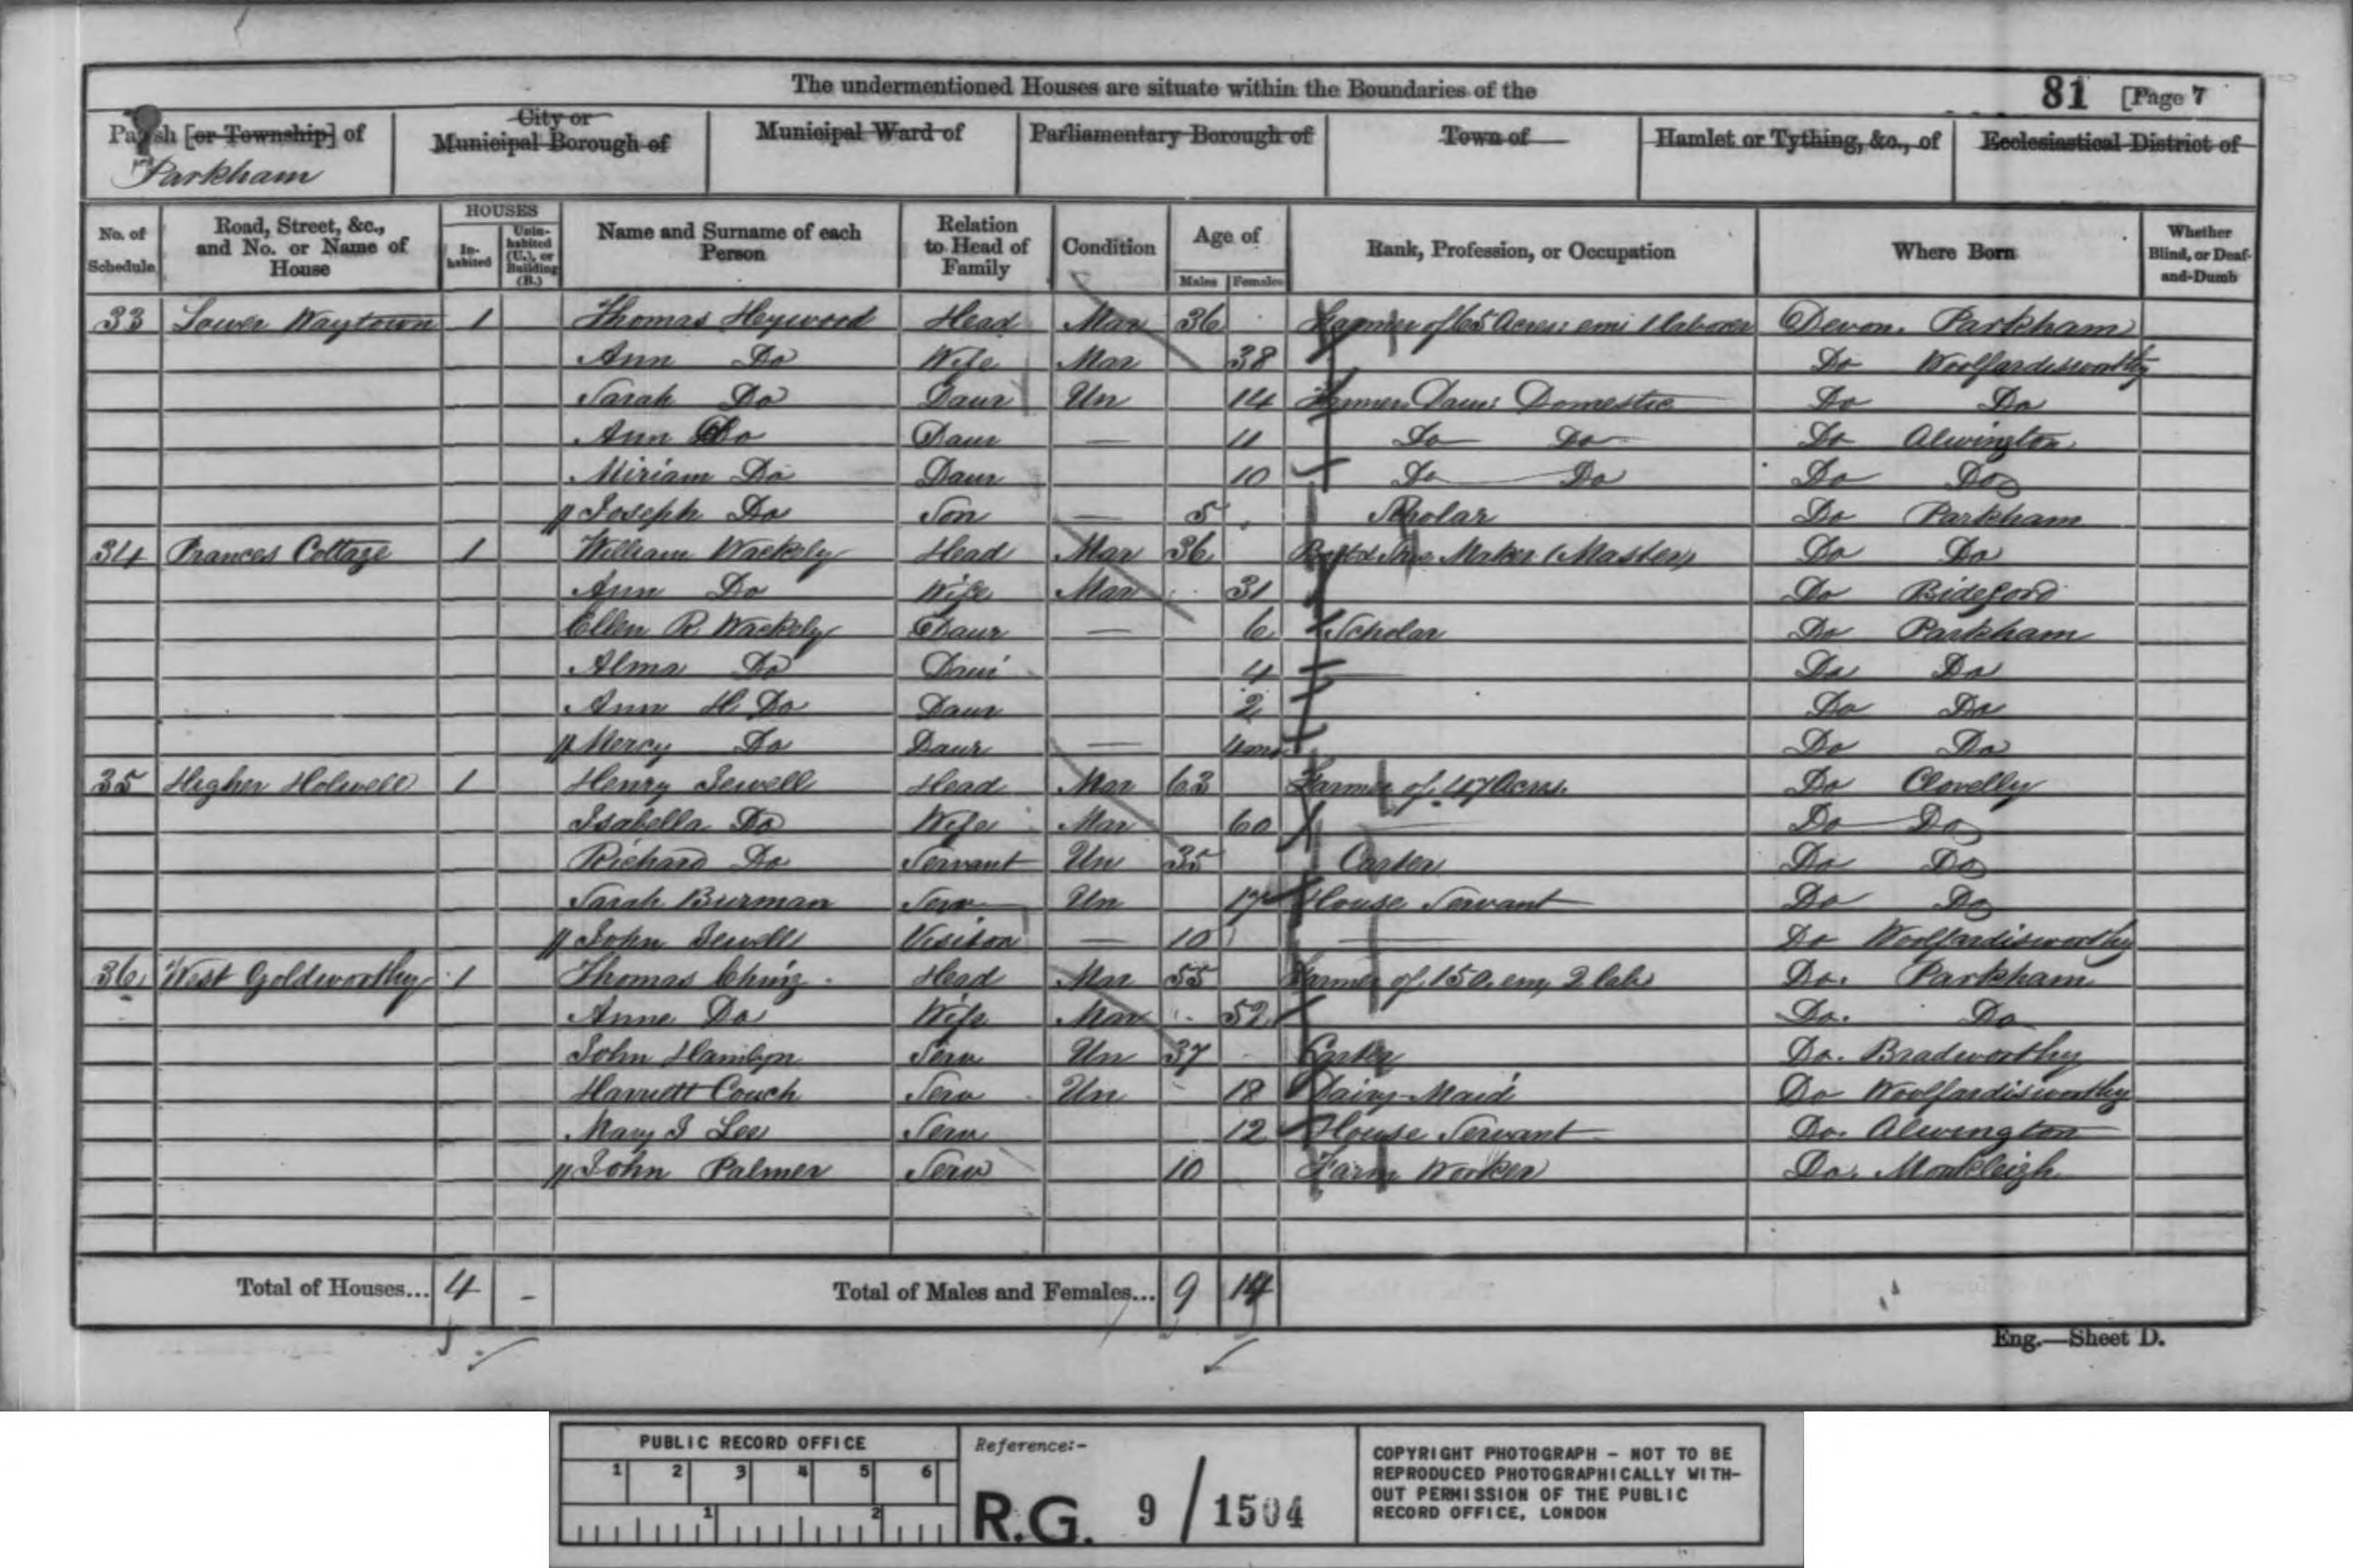 The undermentioned Houses are situate within the Boundaries of the
81 [Page 7
Parish [or Township] of
Parkham
City or Municipal Borough of
Municipal Ward of
Parliamentary Borough of
Town of
Hamlet or Tything, &c., of
Ecclesiastical District of
No. of Schedule
Road, Street, &c., and No. or Name of House
HOUSES
In-habited
Unin-habited (U.), or Building (B.)
Name and Surname of each Person
Relation to Head of Family
Condition
Age of
Males
Females
Rank, Profession, or Occupation
Where Born
Whether Blind, or Deaf-and-Dumb
33 Lower Waytown 1 Thomas Heywood Head Mar 36 Farmer of 65 Acres emi 1 laborer Devon. Parkham
Ann Do Wife Mar 38 Do Woolfardisworthy
Sarah Do Daur Un 14 Farmers Daur Domestic Do Do
Ann Do Daur — 11 Do Do Do Alwington
Miriam Do Daur 10 Do Do Do Do
Joseph Do Son — 5 Scholar Do Parkham
34 Frances Cottage 1 William Wackely Head Mar 36 Boot & Shoe Maker (Master) Do Do
Ann Do Wife Mar 31 Do Bideford
Ellen R Wackely Daur — 6 Scholar Do Parkham
Alma Do Daur 4 — Do Do
Ann H Do Daur 2 Do Do
Mercy Do Daur — 4 mo Do Do
35 Higher Holwell 1 Henry Jewell Head Mar 63 Farmer of 47 Acres. Do Clovelly
Isabella Do Wife Mar 60 — Do Do
Richard Do Servant Un 35 Carter Do Do
Sarah Burman Serv Un 17 House Servant Do Do
John Jewell Visitor — 10 — Do Woolfardisworthy
36 West Goldworthy 1 Thomas Ching Head Mar 55 Farmer of 150. em, 2 labs Do. Parkham
Anne Do Wife Mar 52 Do. Do
John Hamlyn Serv Un 37 Carter Do. Bradworthy
Harriett Couch Serv Un 18 Dairy-Maid Do Woolfardisworthy
Mary J Lee Serv 12 House Servant Do. Alwington
John Palmer Serv 10 Farm Worker Do. Monkleigh
Total of Houses... 4 -
Total of Males and Females... 9 14
Eng.—Sheet D.
PUBLIC RECORD OFFICE
1 2 3 4 5 6
1 2
Reference:-
R.G. 9 / 1504
COPYRIGHT PHOTOGRAPH - NOT TO BE
REPRODUCED PHOTOGRAPHICALLY WITH-
OUT PERMISSION OF THE PUBLIC
RECORD OFFICE, LONDON